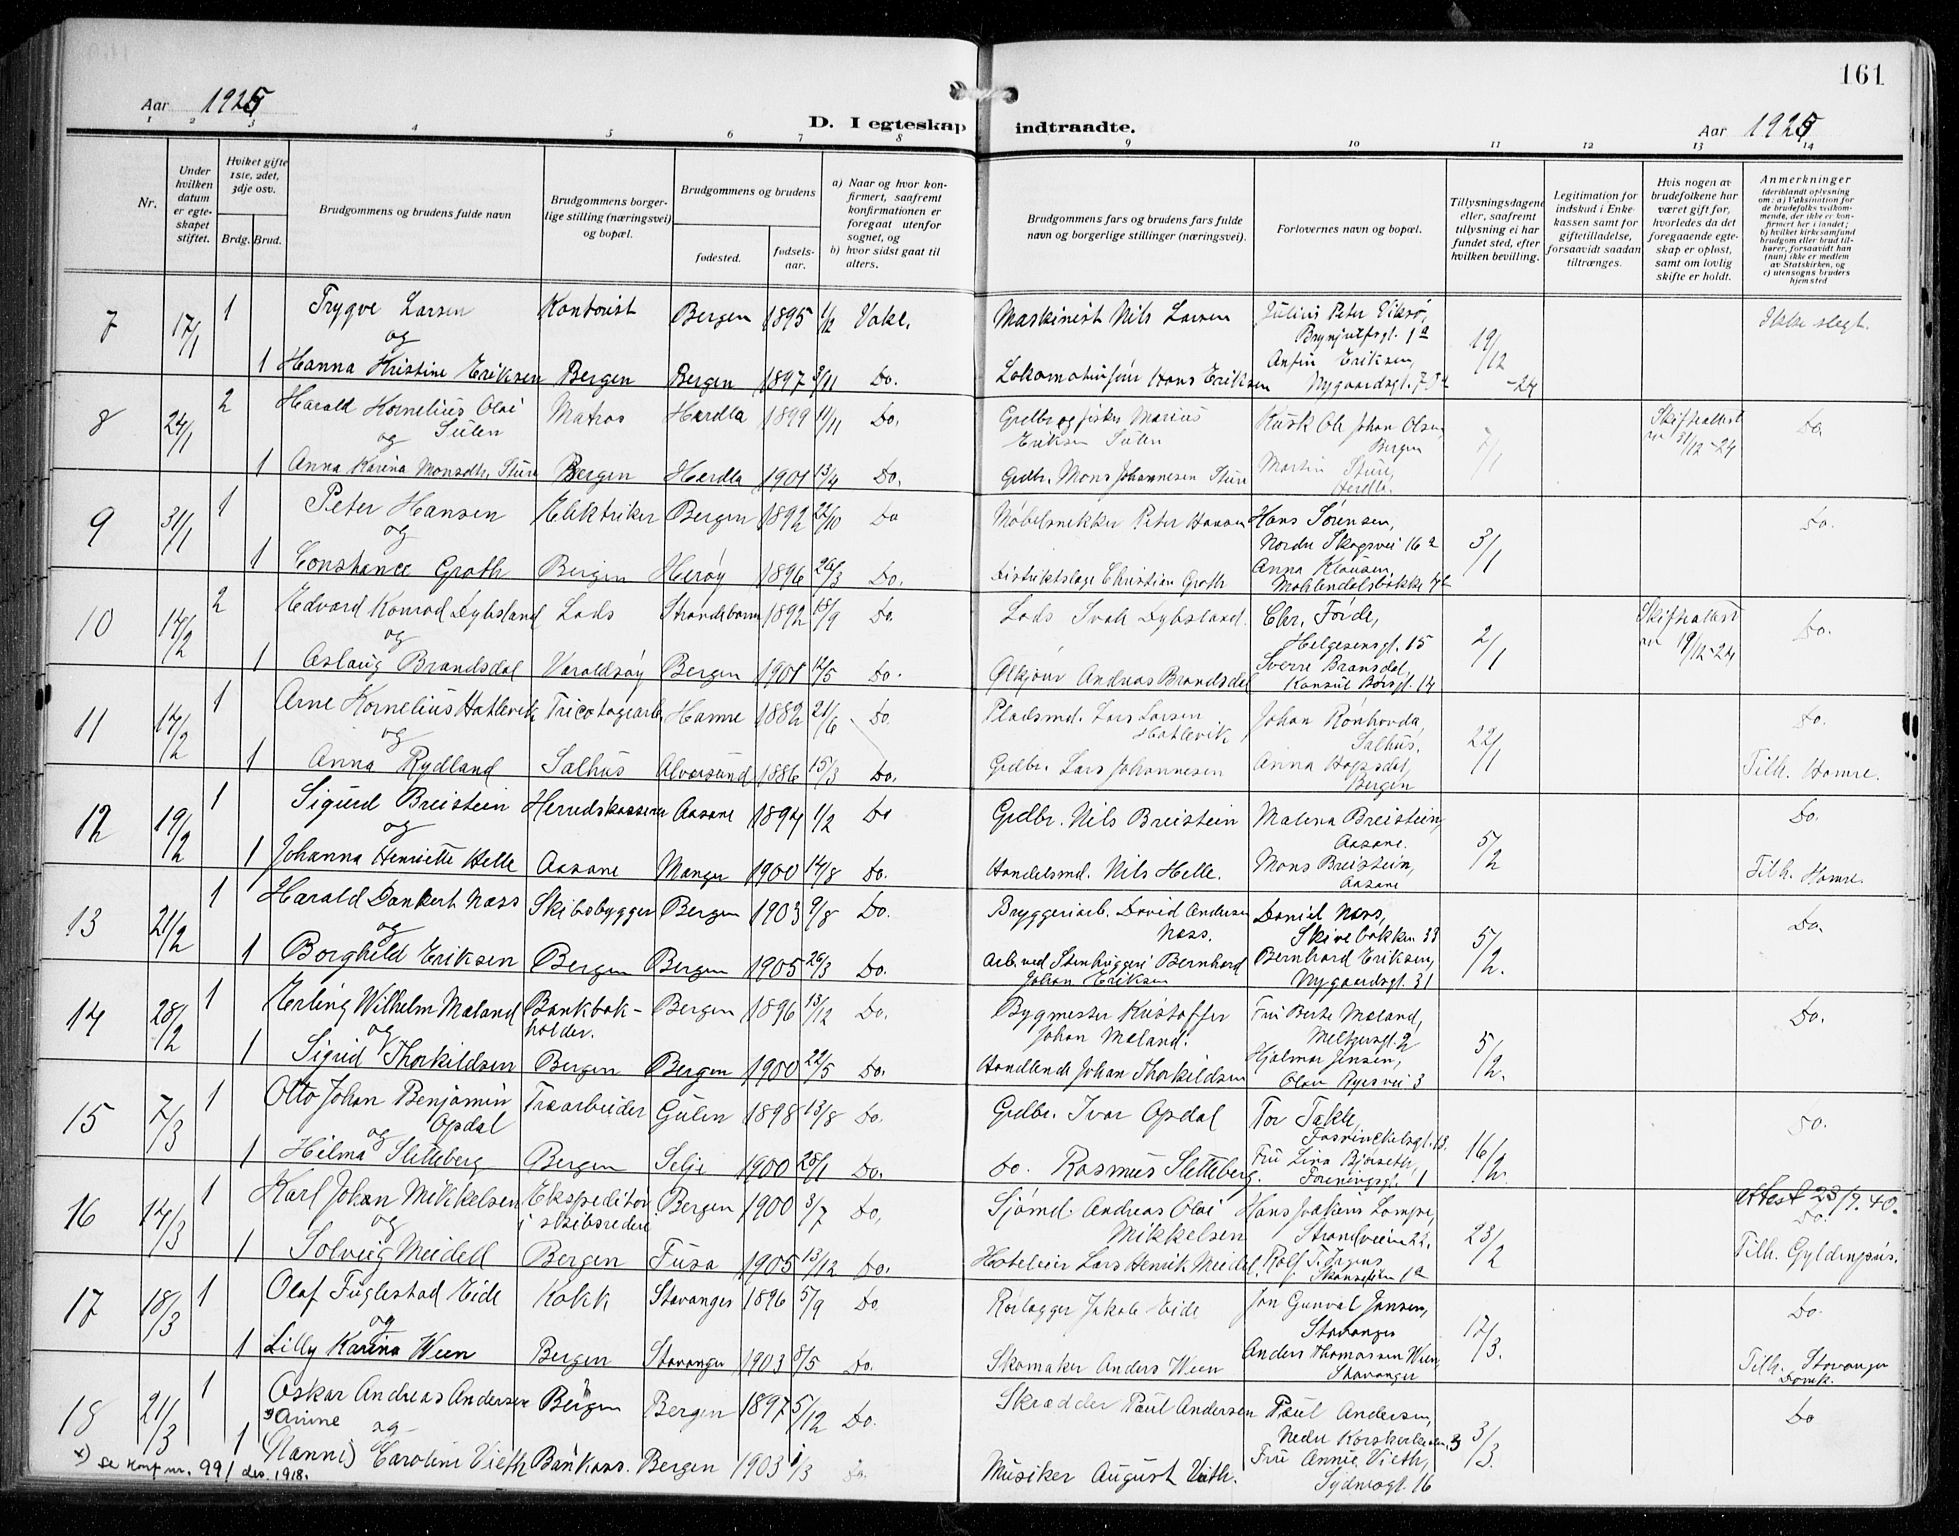 161
Aar 1925
D. I egteskap indtraadte.
Aar 1925
1 2 3 4 5 6 7 8 9 10 11 12 13 14
Nr.
Under hvilken datum er egteskapet stiftet.
Hvilket gifte 1ste, 2det, 3dje osv.
Brdg. Brud.
Brudgommens og brudens fulde navn
Brudgommens borgerlige stilling (næringsvei) og bopæl.
Brudgommens og brudens
fødested. fødselsaar.
a) Naar og hvor konfirmert, saafremt konfirmationen er foregaat utenfor sognet, og
b) hvor sidst gaat til alters.
Brudgommens fars og brudens fars fulde navn og borgerlige stillinger (næringsvei).
Forlovernes navn og bopæl.
Tillysningsdagene eller, saafremt tillysning ei har fundet sted, efter hvilken bevilling.
Legitimation for indskud i Enkekassen samt for giftetilladelse, forsaavidt saadan tiltrænges.
Hvis nogen av brudefolkene har været gift før, hvorledes da det foregaaende egteskap er opløst, samt om lovlig skifte er holdt.
Anmerkninger
(deriblandt oplysning om: a) Vaksination for de brudefolks vedkommende, der ikke er konfirmert her i landet; b) hvilket kirkesamfund brudgom eller brud tilhører, forsaavidt han (hun) ikke er medlem av Statskirken, og c) utensogns bruders hjemsted
7 17/1 1 Trygve Larsen Kontorist Bergen 1895 1/2 Vakc. Maskinist Nils Larsen Julius Peter Eiksø, Brynjulfsgt. 1a 19/12-24 Ikke slegt.
og
1 Hanna Kristine Eriksen Bergen Bergen 1897 3/11 Do. Lokomotivfører Hans Eriksen Anfin Eriksen, Nygaardsgt.
8 24/1 2 Harald Kornelius Olai Sulen Matros Herdla 1899 11/11 Do. Grdbr og fisker Marius Eriksen Sulen Kusk Ole Johan Olsen, Bergen 7/1 Skifteattest av 31/12-24 Do.
og
1 Anna Karina Monsdtr. Sture Bergen Herdla 1901 13/4 Do. Grdbr. Mons Johannesen Sture Martin Sture, Herdla.
9 31/1 1 Peter Hansen Elektriker Bergen 1892 22/10 Do Møbelsnekker Peter Hansen Hans Sørensen, Nordre Skogvei 16a 3/1 Do.
og
1 Constance Groth Bergen Herøy 1896 26/3 Do. Distriktslæge Christian Groth Anna Klausen, Møhlendalsbakke
10 14/2 2 Edvard Konrad Dybsland Lods Strandebarm 1892 18/9 Do. Lods Ivar Dybsland. Chr. Førde, Helgesensgt. 15 2/1 Skifteattest av 19/12-24 Do.
og
1 Aslaug Brandsdal Varaldsøy Bergen 1901 12/5 Do. Ølkjører Andreas Brandsdal Sverre Bransdal, Konsul Børsgt. 14
11 14/2 1 Arne Kornelius Hatlevik Tricotagearb. Hamre 1882 21/6 Do. Pladsmd. Lars Larsen Hatlevik Johan Rønhovda, Salhus. 22/1 Do.
og
1 Anna Rydland Salhus Alversund 1886 15/3 Do. Grdbr. Lars Johannesen Anna Hopsdal, Bergen Tilh. Hamre.
12 19/2 1 Sigurd Breistein Herredskasserer Aasane 1894 1/2 Do Grdbr. Nils Breistein Malena Breistein, Aasane. 5/2 Do.
og
1 Johanna Henriette Helle Aasane Manger 1900 14/8 Do. Handelsmd. Nils Helle. Mons Breistein, Aasane Tilh. Hamre.
13 21/2 1 Harald Dankert Næss Skibsbygger Bergen 1903 9/8 Do. Bryggeriarb. David Andersen Næss. Daniel Næss, Skivebakken 33 5/2. Do.
og
1 Borghild Eriksen Bergen Bergen 1905 26/3 Do. Arb. ved Stenhuggeri Bernhard Johan Eriksen Bernhard Eriksen, Nygaardsgt. 31
14 28/2 1 Erling Wilhelm Mæland Bankbokholder. Bergen 1896 13/12 Do. Bygmester Kristoffer Johan Mæland. Fru Berte Mæland, Meltzersgt. 2 5/2. Do.
og
1 Sigrid Thorkildsen Bergen Bergen 1900 22/5 Do. Handlende Johan Thorkildsen Hjalmar Jensen, Olav Ryesvei 3
15 7/3 1 Otto Johan Benjamin Opdal Træarbeider Gulen 1898 13/8 Do. Grdbr. Ivar Opdal Tor Takle, 16/2. Do.
og
1 Hilma Sletteberg Bergen Selje 1900 28/1 Do. Do. Rasmus Sletteberg. Fru Lina Bjørseth, Foreningsgt. 1
16 14/3 1 Karl Johan Mikkelsen Ekspeditør i skibsrederi Bergen 1900 3/7 Do. Sjømd. Andreas Olai Mikkelsen Hans Lampe, Strandveien 22. 23/2 Attest 23/9.40. Do.
og
1 Solveig Meidell Bergen Fusa 1905 13/12 Do. Hoteleier Lars Henrik Meidell. Rolf T. Tilh. Gyldenpris.
17 18/3 1 Olaf Fuglestad Eide Kokk Stavanger 1896 5/9 Do. Rørlægger Jakob Eide Jon Gunval Jansen, Stavanger 17/3. Do.
og
1 Lilly Karina Ween Bergen Stavanger 1903 8/5 Do. Skomaker Anders Ween Anders Thomassen Ween, Stavanger Tilh. Stavanger Domk.
18 21/3 1 Oskar Andreas Andersen Bergen Bergen 1897 5/12 Do. Skrædder Paul Andersen Paul Andersen, Nedre Korskirkealm. 3 3/3. Do
x) Anine og
1 (Nanni) Caroline Vieth Bankass. Bergen 1903 1/3 Do. Musiker August Vieth. Fru Annie Vieth, Sydnesgt. 16
x) se konf nr. 99/ des. 1918.